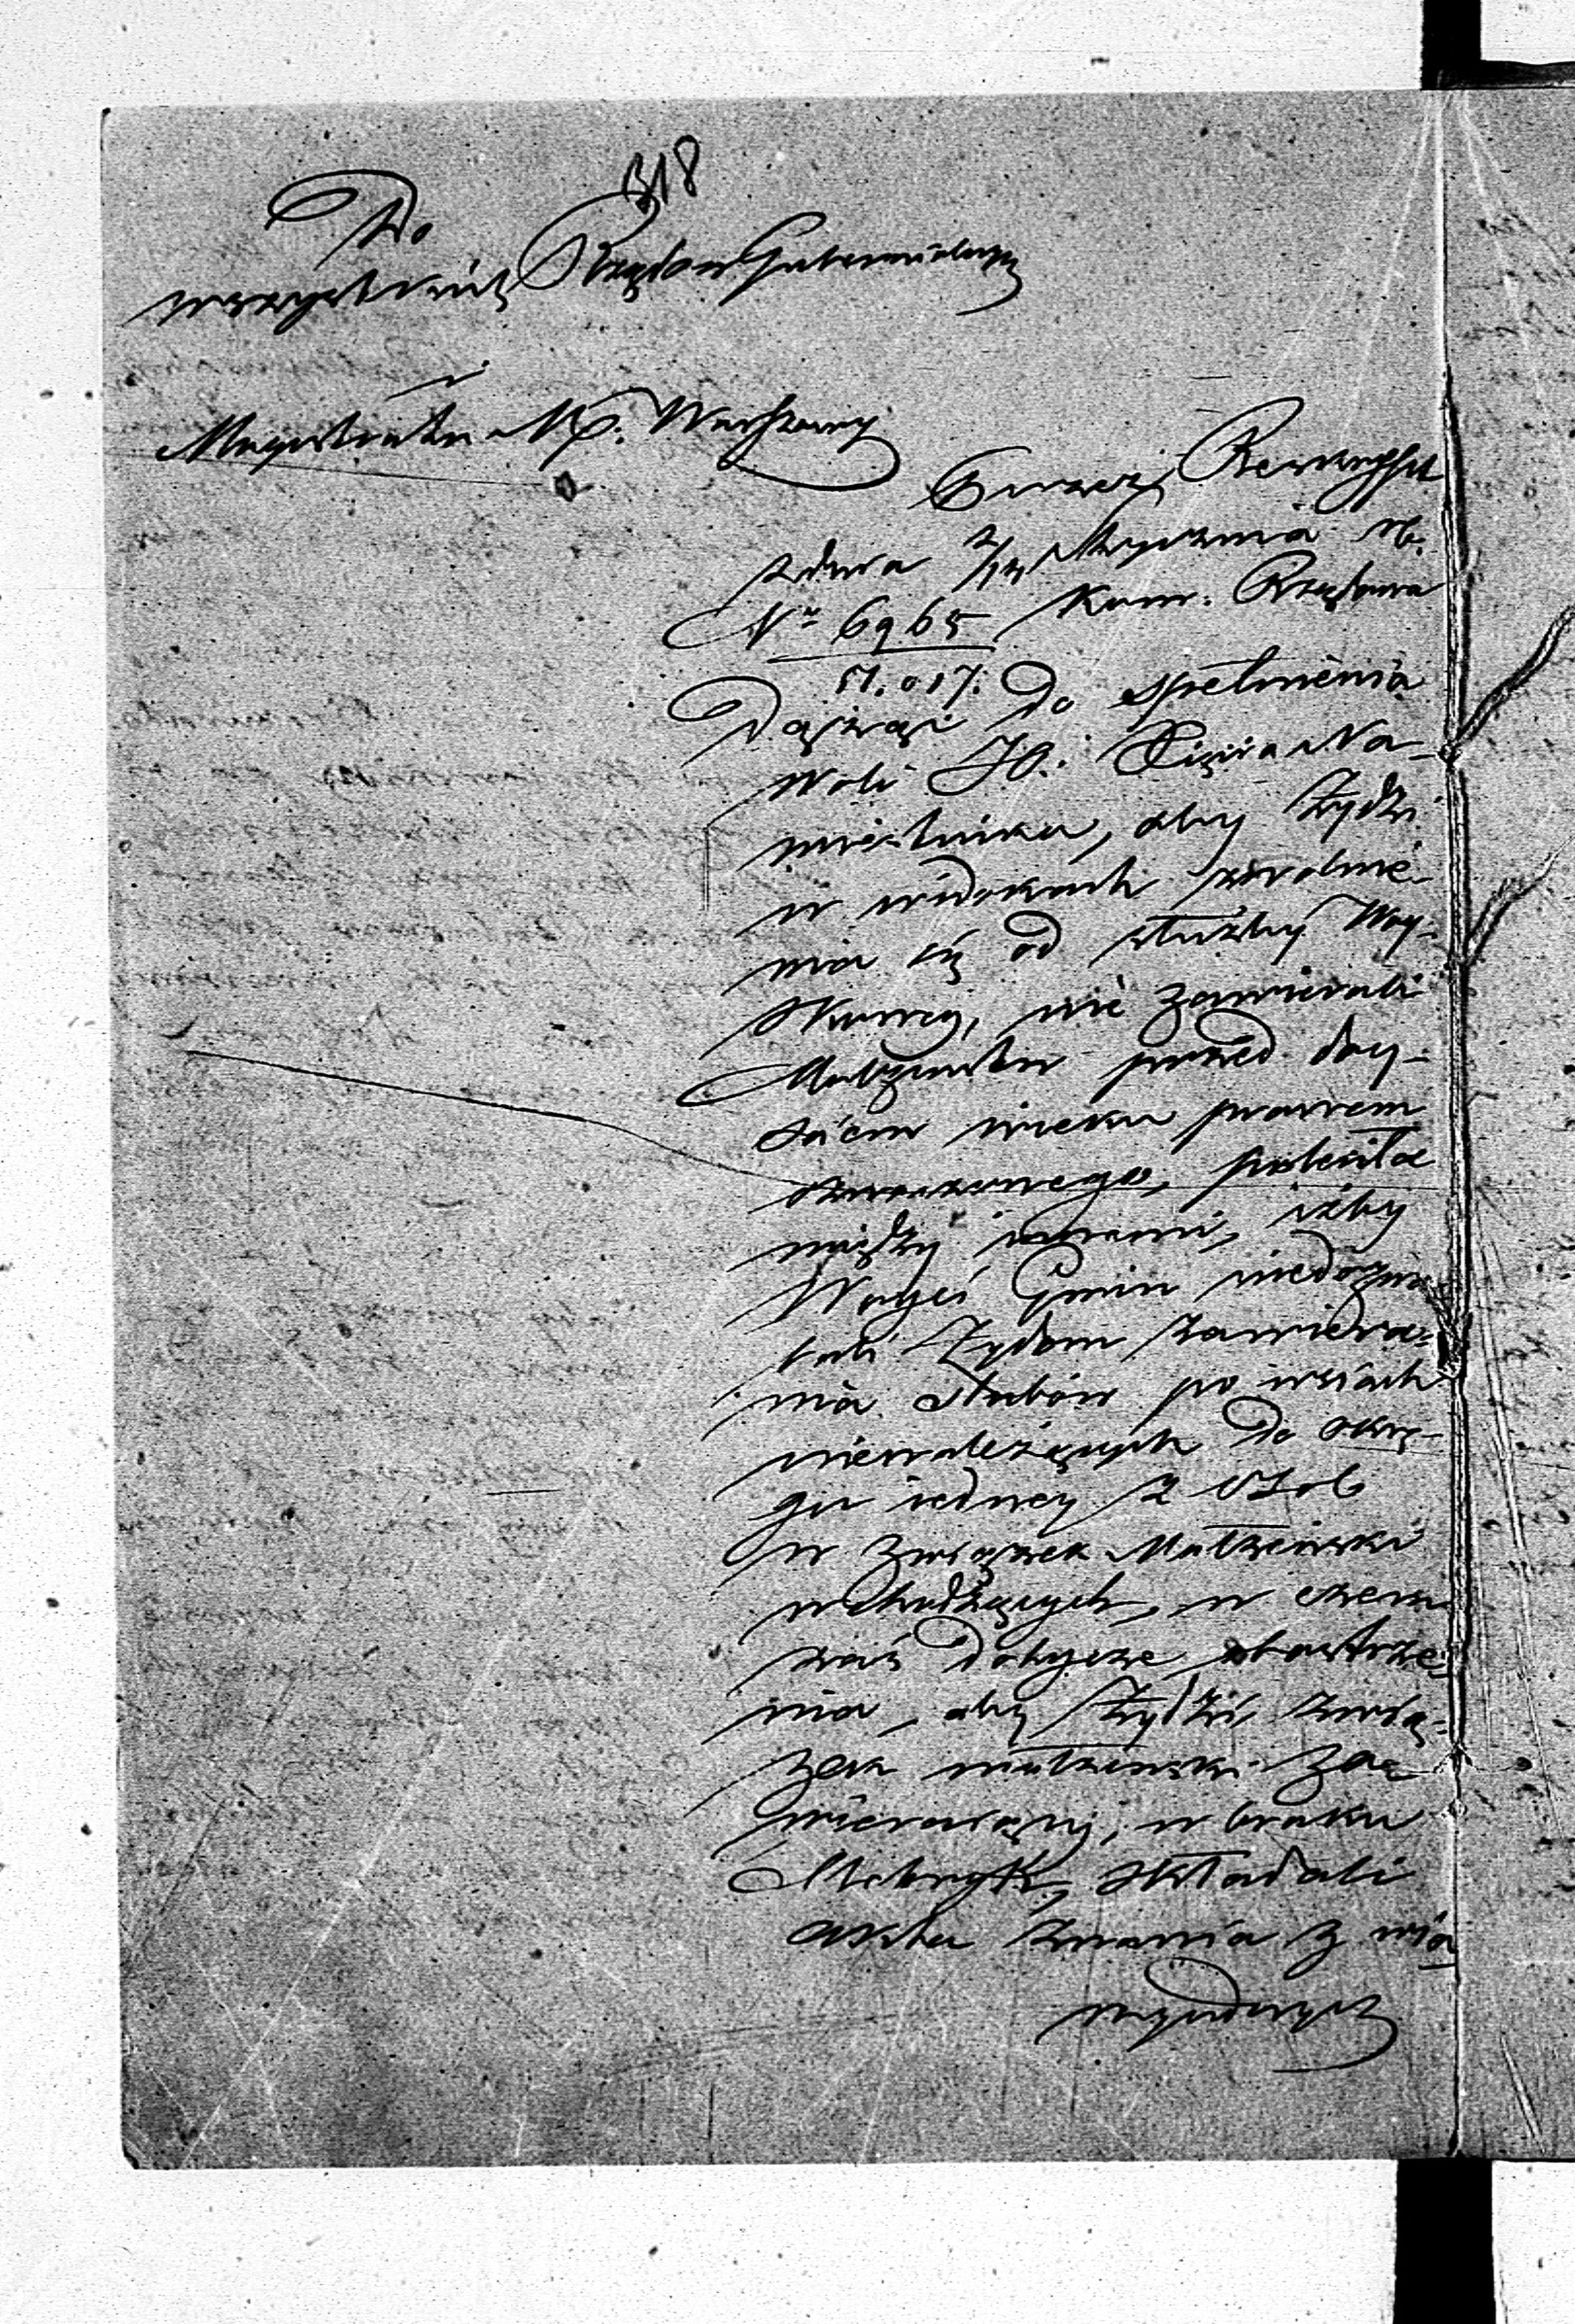 318
Do
wszystkich Rządów Gubernialnych
i
Magistratu M. Warszawy
Przez Reskrypt
z dnia 2/14 Stycznia rb.
N° 6965
Kom. Rządowa
Dążąc do spełnienia
Woli JO. Xięcia Na-
miestnika, aby Żydzi
w widokach zwolnie-
nia się od służby Woy-
skowey, nie zawierali
Małżeństw przed doy-
ściem wieku prawem
oznaczonego, poleciła
między innemi, iżby
Wóyci Gmin niedozwa-
lali Żydom zawiera-
nia ślubów po wsiach
nienależących do okrę-
gu iedney z osob
w związek Małżeński
wchodzących, w czem
zaś dotycze obostrze-
nia, aby Żydzi, zwią-
zek małżeński za-
wieraiący, w braku
Metryk, składali
akta znania z wia
rygodnych